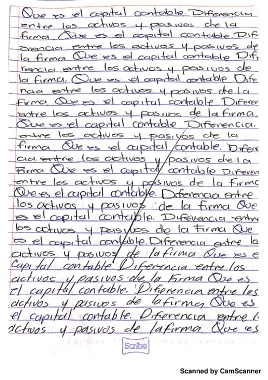 Que es el capital contable. Diferencia
entre los activos y pasivos de la
firma. Que es el capital contable. Dife
rencia entre los activos y pasivos de
la firma Que es el capital contable Dif
erencia entre los activos y pasivos de
la firma. Que es el capital contable. Dife
rencia entre los activos y pasivos de la
firma. Que es el capital contable. Diferen
entre los activos y pasivos de la firma.
Que es el capital contable. Diferencia
entre los activos y pasivos de la
firma. Que es el capital contable. Difere
cia entre los activos y pasivos de la
firma. Que es el capital contable. Diferen
entre los activos y pasivos de la firma
Que es el capital contable. Diferencia entre
los activos y pasivos de la firma Que
es el capital contable. Diferencia entre
los activos y pasivos de la firma Que
es el capital contable. Diferencia entre la
activos y pasivos de la firma. Que es e
Capital contable Diferencia entre los
activos y pasivos de la firma Que es
el capital contable. Diferencia entre los
activos y pasivos de la firma Que es
el capital contable. Diferencia entre l
activos y pasivos de la firma. Que es
Scribe
Scanned by CamScanner